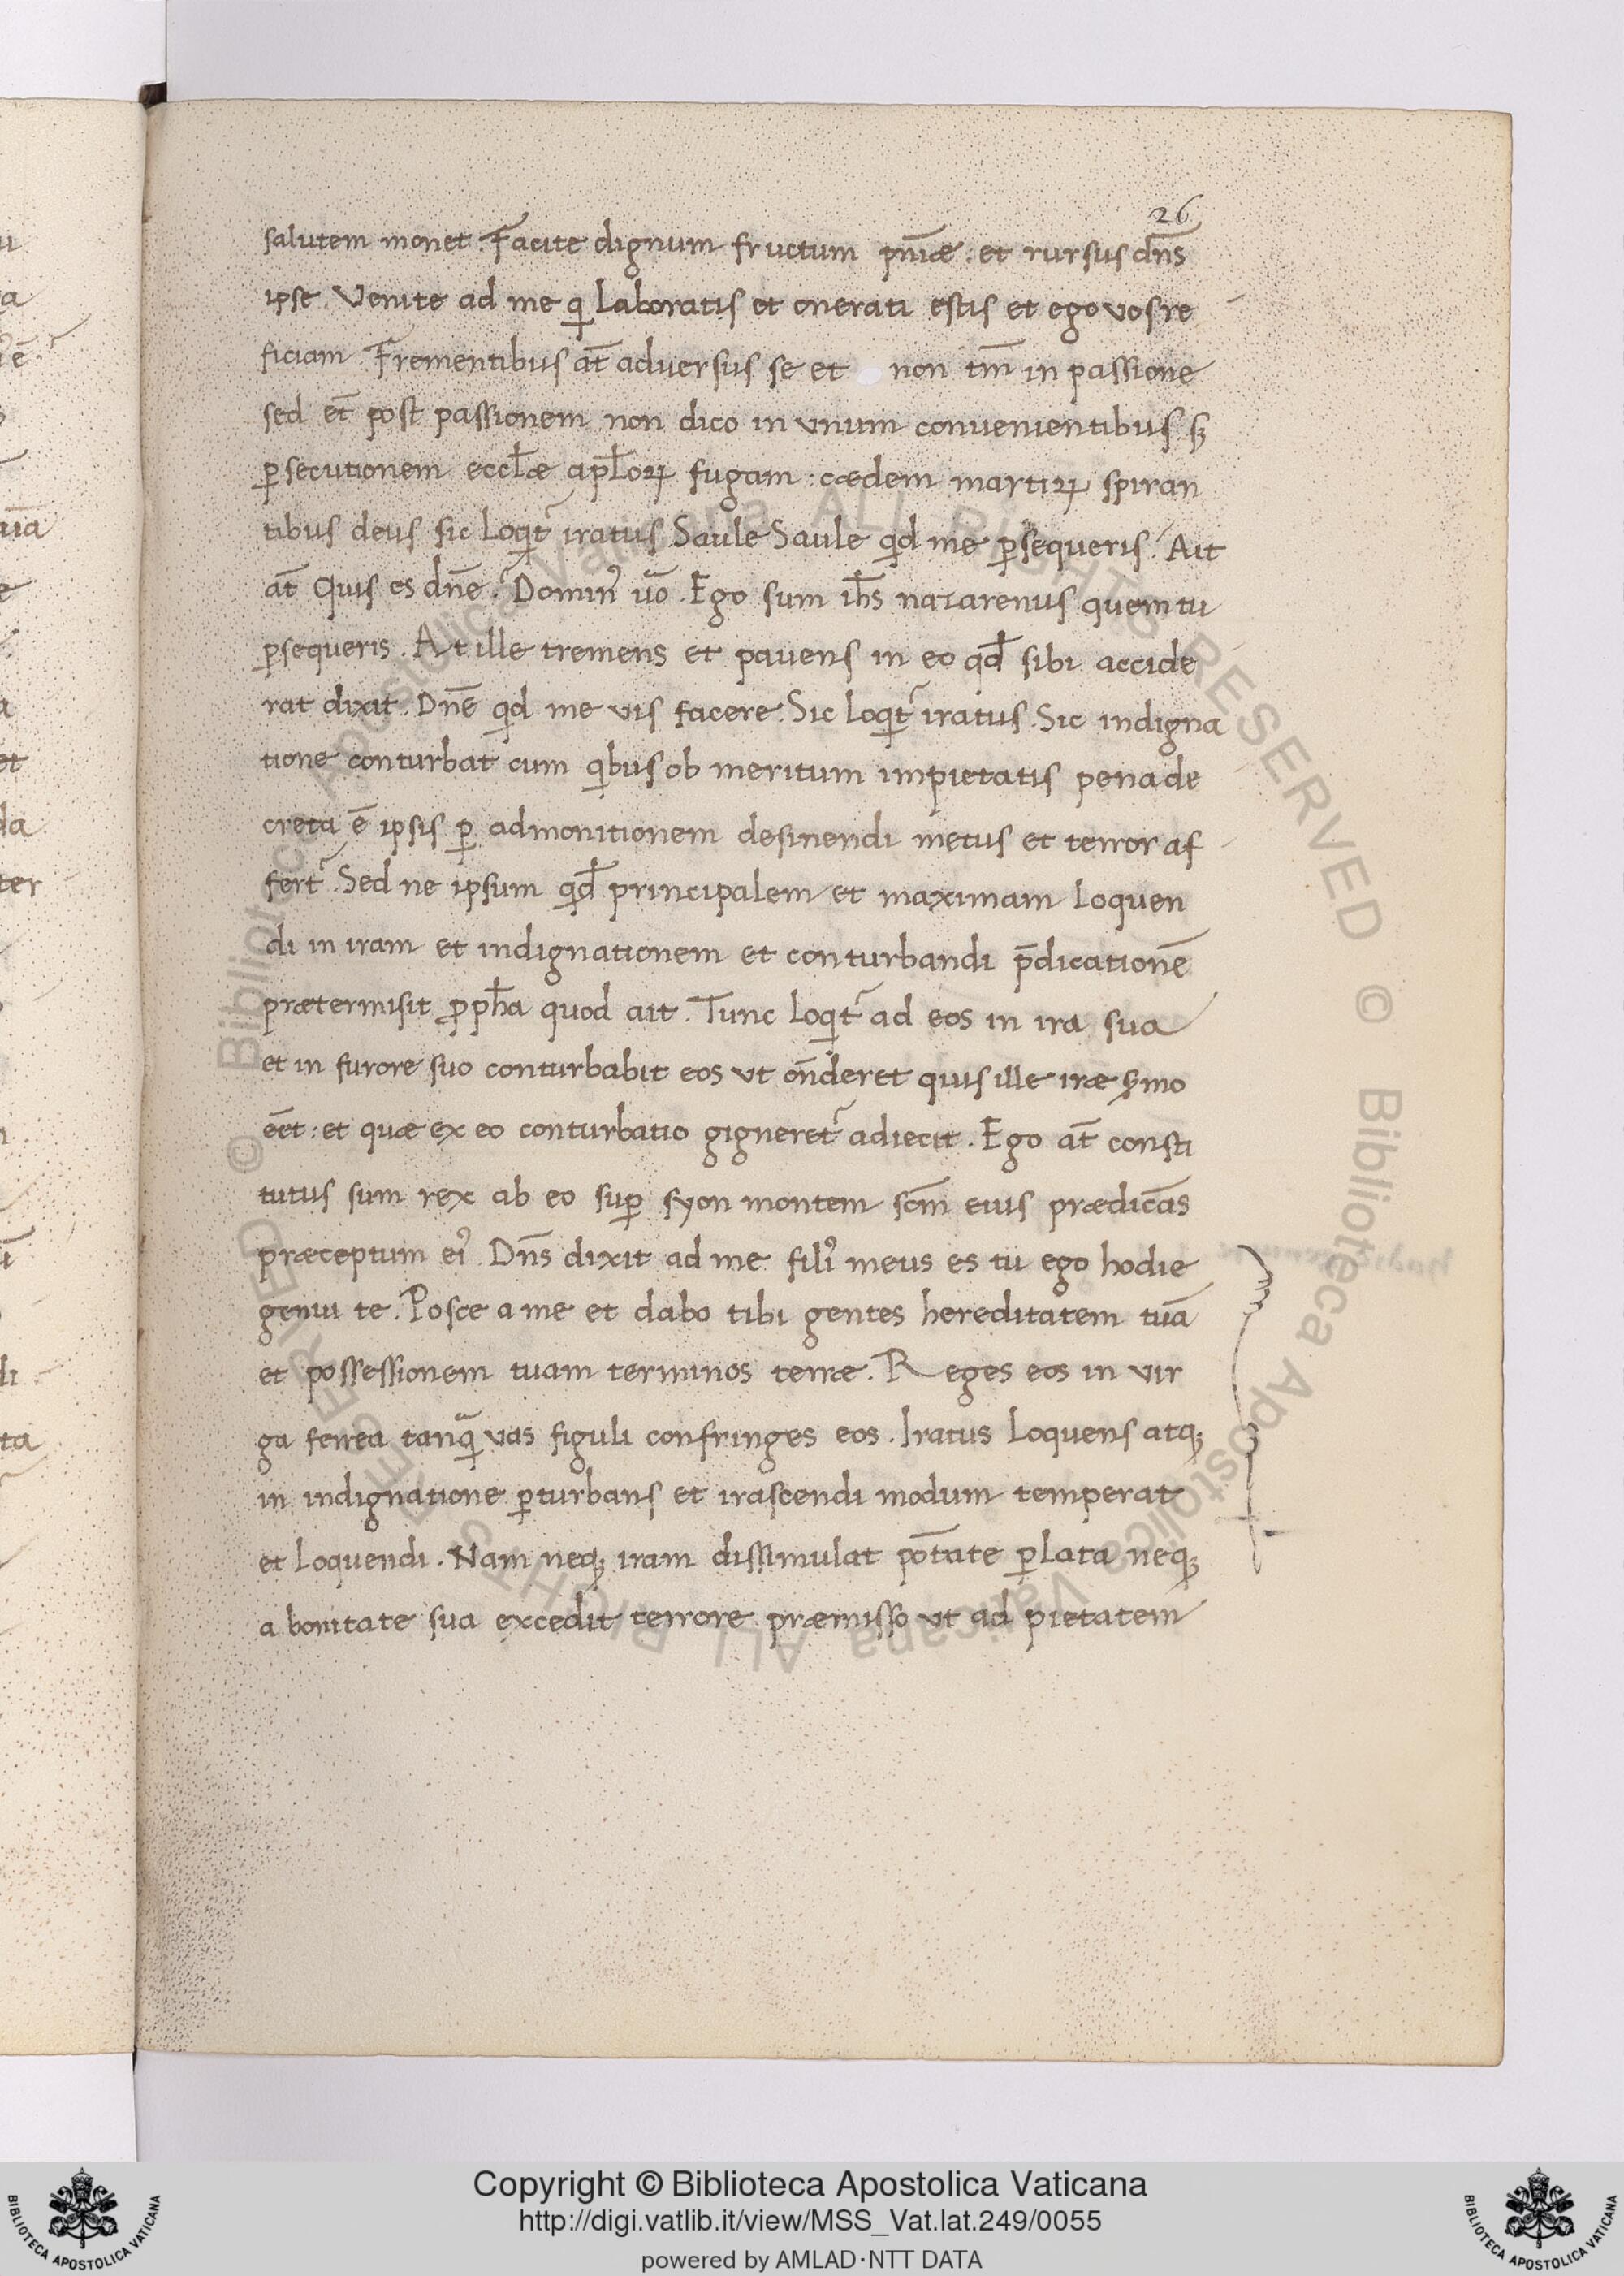 26
salutem monet. Facite dignum fructum pn̄iæ. et rursus dn̄s
ipse. Venite ad me qi laboratis et onerati estis et ego vos re
ficiam Frementibus at̄ adversus se et non tm̄ in passione
sed et̄ post passionem non dico in vnum convenientibus sꝫ
ꝑsecutionem eccl̄æ apl̄oꝝ fugam: cædem martiꝝ spiran
tibus deus sic loqit᷑ iratus Saule Saule qid me ꝑsequeris. Ait
at̄ Quis es dn̄e. Domin᷒ uō. Ego sum ih̄s nazarenus quem tu
ꝑsequeris. At ille tremens et pavens in eo qd̄ sibi accide
rat dixit. Dn̄e qid me vis facere. Sic loqit᷑ iratus. Sic indigna
tione conturbat cum qibus ob meritum impietatis pena de
creta ē ipsis ꝑ admonitionem desinendi metus et terror af
fert᷑ Sed ne ipsum qid̄ principalem et maximam loquen
di in iram et indignationem et conturbandi p̄dicationē
prætermisit ꝓph̄a quod ait. Tunc loqit᷑ ad eos in ira sua
et in furore suo conturbabit eos vt on̄deret quis ille iræ s̄mo
eēt: et quæ ex eo conturbatio gigneret᷑ adiecit. Ego at̄ consti
tutus sum rex ab eo suꝑ syon montem scm̄ eius prædicās
præceptum ei᷒ Dn̄s dixit ad me fili᷒ meus es tu ego hodie
genui te. Posce a me et dabo tibi gentes hereditatem tuā
et possessionem tuam terminos terræ. Reges eos in vir
ga ferrea tanqā vas figuli confringes eos. Iratus loquens atqꝫ
in indignatione ꝑturbans et irascendi modum temperat
et loquendi. Nam neqꝫ iram dissimulat potāte ꝑlata neqꝫ
a bonitate sua excedit terrore præmisso vt ad pietatem
© Biblioteca Apostolica Vaticana ALL RIGHTS RESERVED © Biblioteca Apostolica Vaticana ALL RIGHTS RESERVED
Copyright © Biblioteca Apostolica Vaticana
http://digi.vatlib.it/view/MSS_Vat.lat.249/0055
powered by AMLAD·NTT DATA
BIBLIOTECA APOSTOLICA VATICANA
BIBLIOTECA APOSTOLICA VATICANA